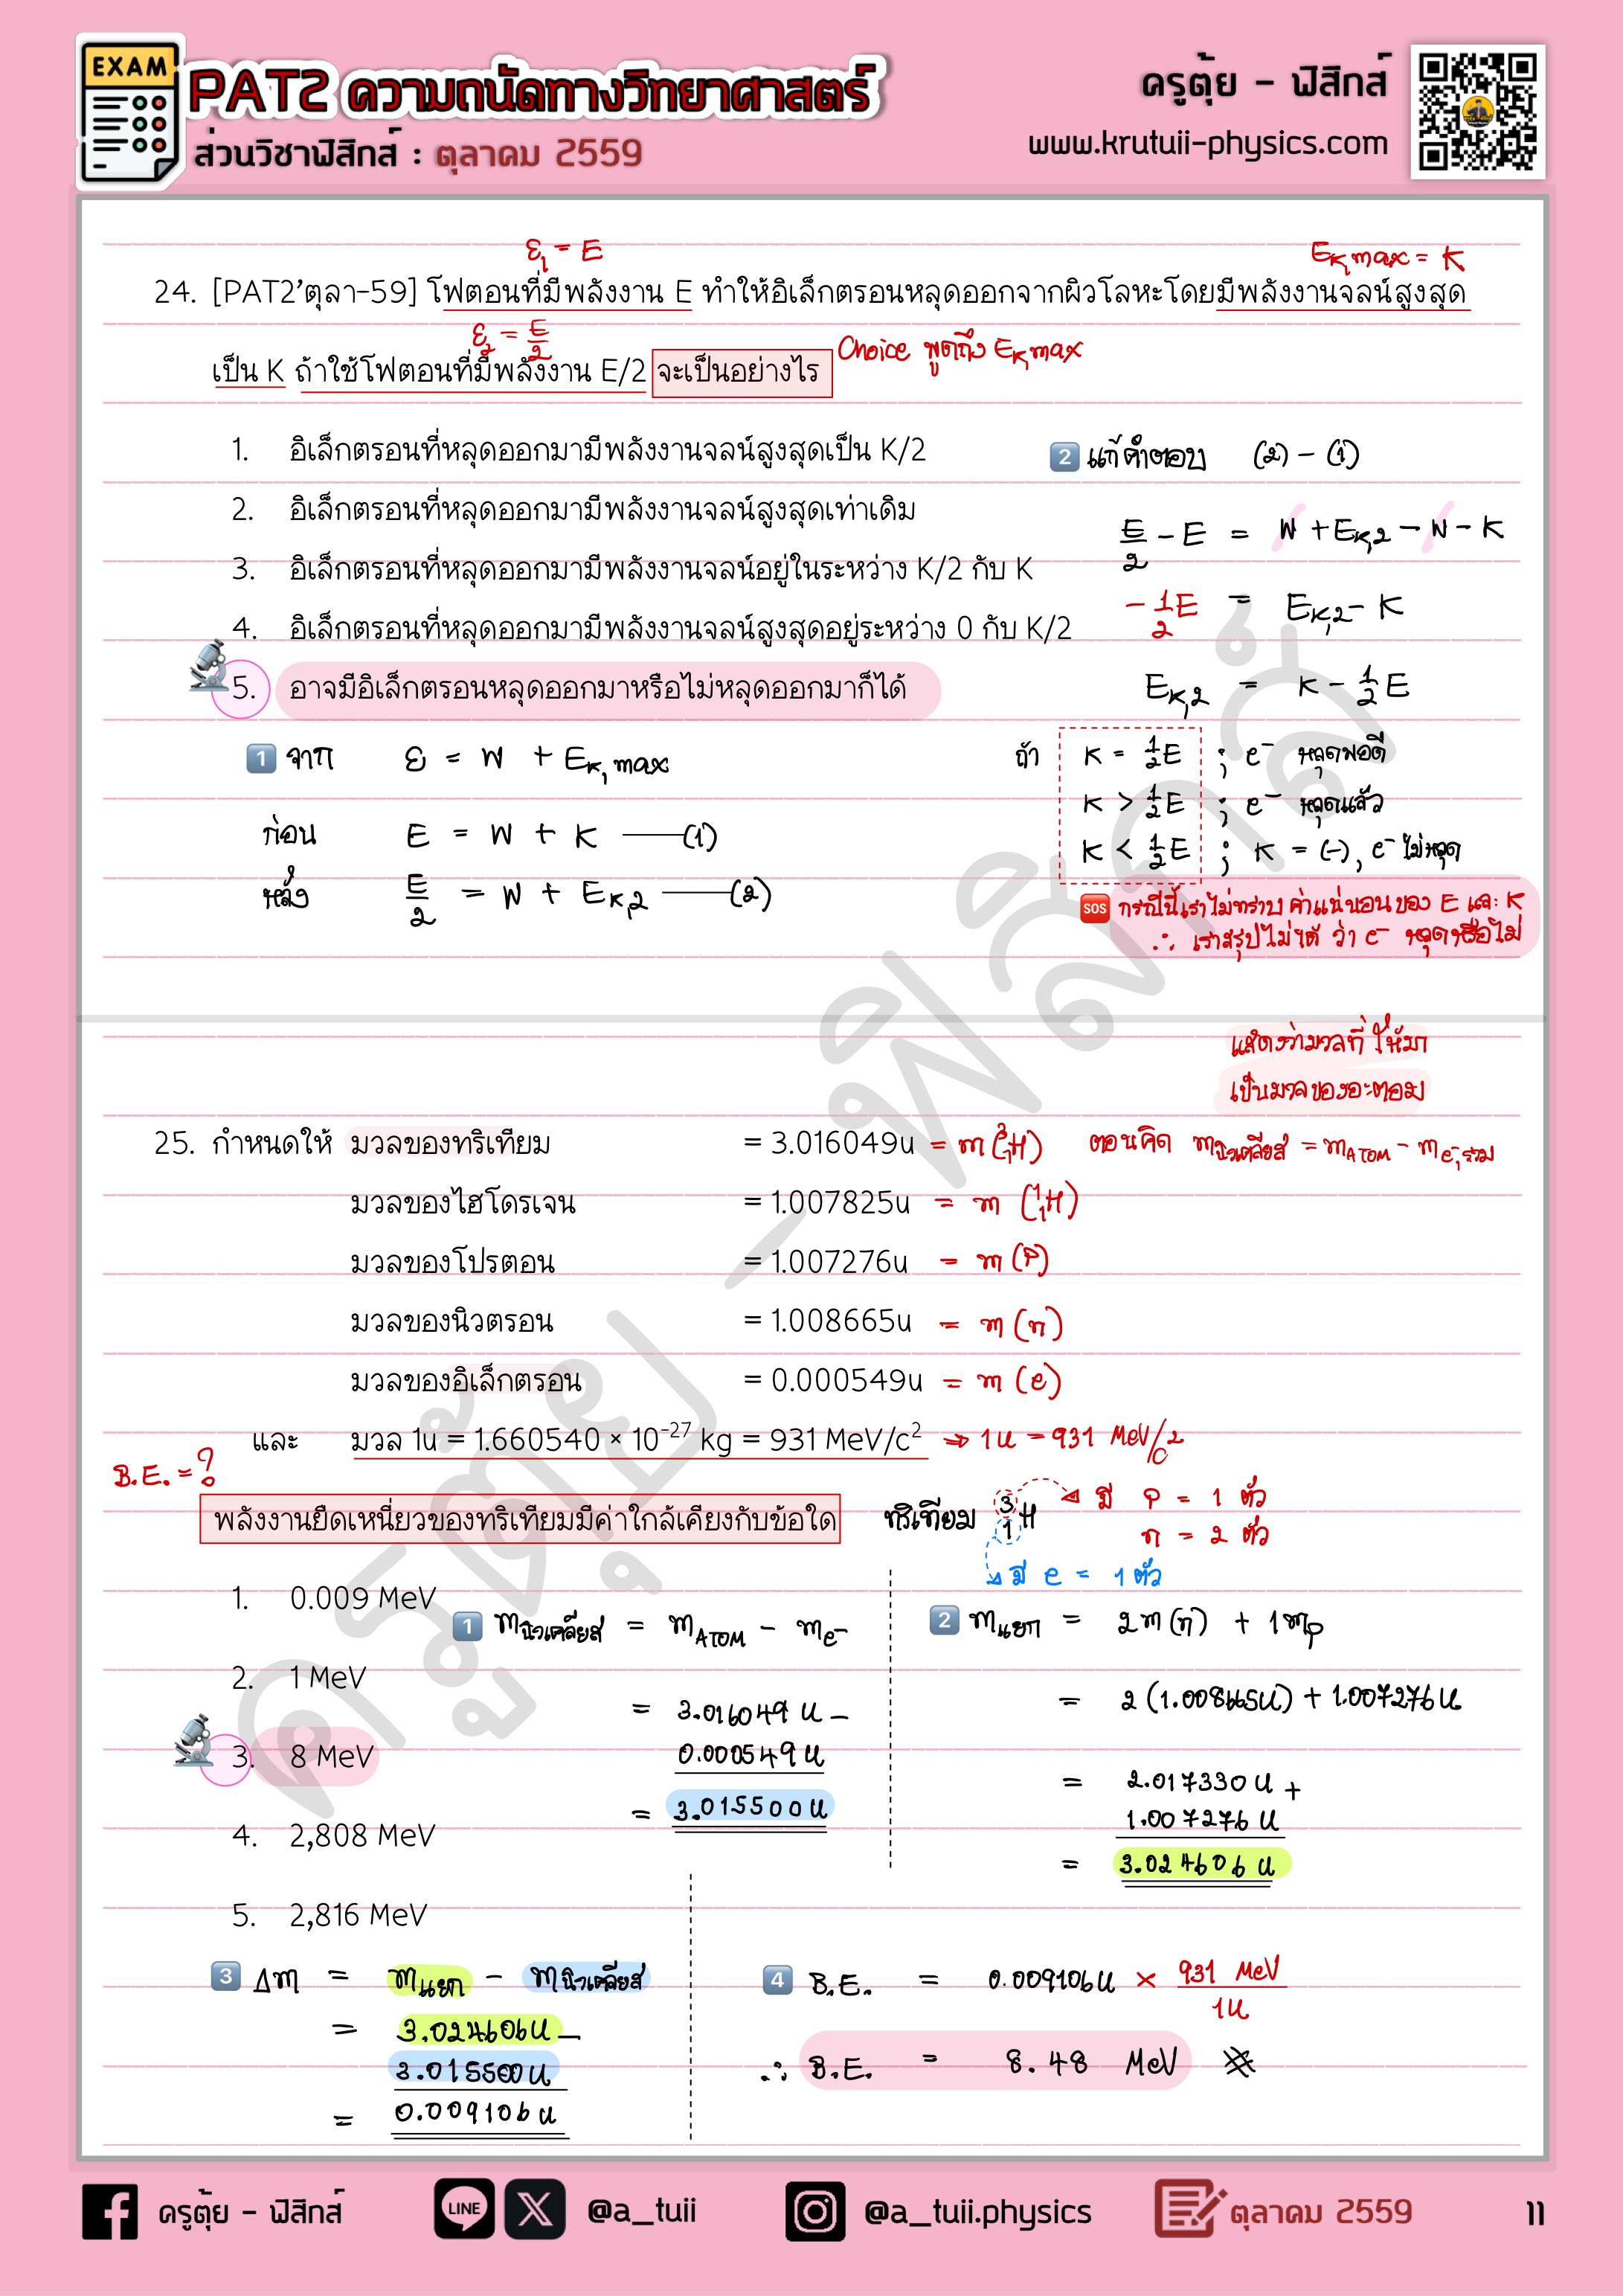 EXAM
PAT2 ความถนัดทางวิทยาศาสตร์
ส่วนวิชาฟิสิกส์ : ตุลาคม 2559
ครูตุ้ย - ฟิสิกส์
www.krutuii-physics.com
ε₁ = E
E_K,max = K
24. [PAT2'ตุลา-59] โฟตอนที่มีพลังงาน E ทำให้อิเล็กตรอนหลุดออกจากผิวโลหะโดยมีพลังงานจลน์สูงสุด
ε₂ = E/2
เป็น K ถ้าใช้โฟตอนที่มีพลังงาน E/2 จะเป็นอย่างไร Choice พูดถึง E_K,max
1. อิเล็กตรอนที่หลุดออกมามีพลังงานจลน์สูงสุดเป็น K/2
2. อิเล็กตรอนที่หลุดออกมามีพลังงานจลน์สูงสุดเท่าเดิม
3. อิเล็กตรอนที่หลุดออกมามีพลังงานจลน์อยู่ในระหว่าง K/2 กับ K
4. อิเล็กตรอนที่หลุดออกมามีพลังงานจลน์สูงสุดอยู่ระหว่าง 0 กับ K/2
5. อาจมีอิเล็กตรอนหลุดออกมาหรือไม่หลุดออกมาก็ได้
1 จาก ε = W + E_K,max
ก่อน E = W + K —(1)
หลัง E/2 = W + E_K,2 —(2)
2 แก้คำตอบ (2) - (1)
E/2 - E = W + E_K,2 - W - K
-1/2 E = E_K,2 - K
E_K,2 = K - 1/2 E
ถ้า K = 1/2 E ; e⁻ หลุดพอดี
K > 1/2 E ; e⁻ หลุดแล้ว
K < 1/2 E ; K = (-), e⁻ ไม่หลุด
SOS กรณีนี้เราไม่ทราบ ค่าแน่นอนของ E และ K
∴ เราสรุปไม่ได้ ว่า e⁻ หลุดหรือไม่
แสดงว่ามวลที่ให้มา
เป็นมวลของอะตอม
25. กำหนดให้ มวลของทริเทียม = 3.016049u = m(³₁H) ตอนคิด m นิวเคลียส = m_ATOM - m_e⁻,รวม
มวลของไฮโดรเจน = 1.007825u = m(¹₁H)
มวลของโปรตอน = 1.007276u = m(P)
มวลของนิวตรอน = 1.008665u = m(n)
มวลของอิเล็กตรอน = 0.000549u = m(e)
และ มวล 1u = 1.660540 × 10⁻²⁷ kg = 931 MeV/c² ⇒ 1u = 931 MeV/c²
B.E. = ?
พลังงานยึดเหนี่ยวของทริเทียมมีค่าใกล้เคียงกับข้อใด
ทริเทียม ³₁H มี P = 1 ตัว
n = 2 ตัว
มี e = 1 ตัว
1. 0.009 MeV
2. 1 MeV
3. 8 MeV
4. 2,808 MeV
5. 2,816 MeV
1 m นิวเคลียส = m_ATOM - m_e⁻
= 3.016049 u -
0.000549 u
= 3.015500 u
2 m แยก = 2m(n) + 1m_p
= 2(1.008665u) + 1.007276u
= 2.017330 u +
1.007276 u
= 3.024606 u
3 Δm = m แยก - m นิวเคลียส
= 3.024606u -
3.015500u
= 0.009106u
4 B.E. = 0.009106u × 931 MeV/1u
∴ B.E. = 8.48 MeV
ครูตุ้ย - ฟิสิกส์
ครูตุ้ย - ฟิสิกส์
LINE
@a_tuii
@a_tuii.physics
ตุลาคม 2559
11